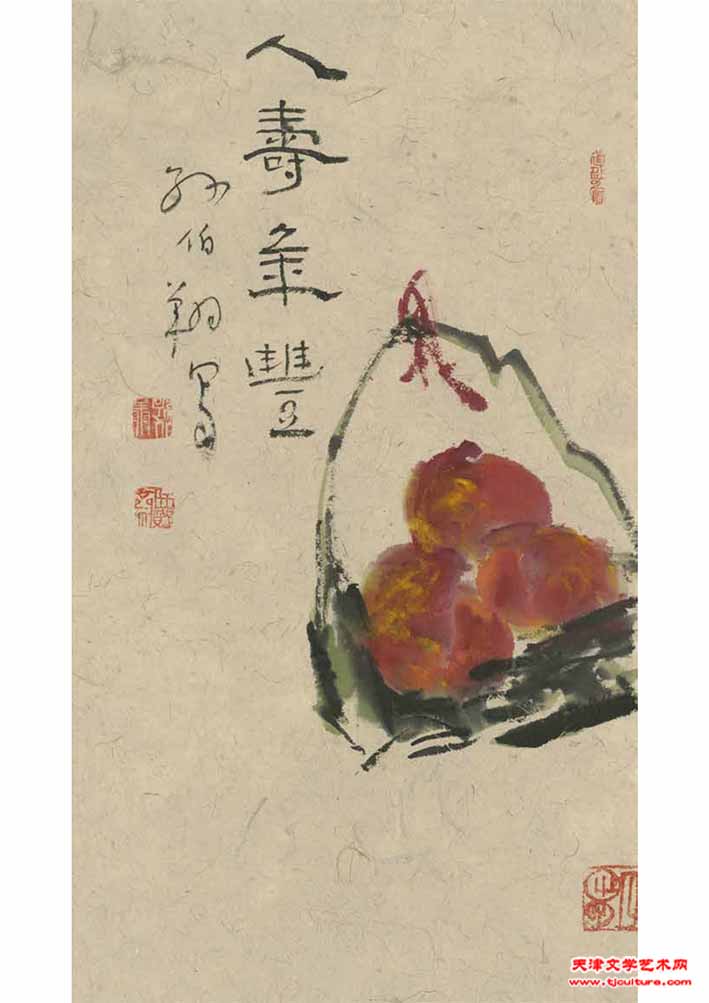 人壽年豐
孙伯翔写
天津文学艺术网
www.tjculture.com